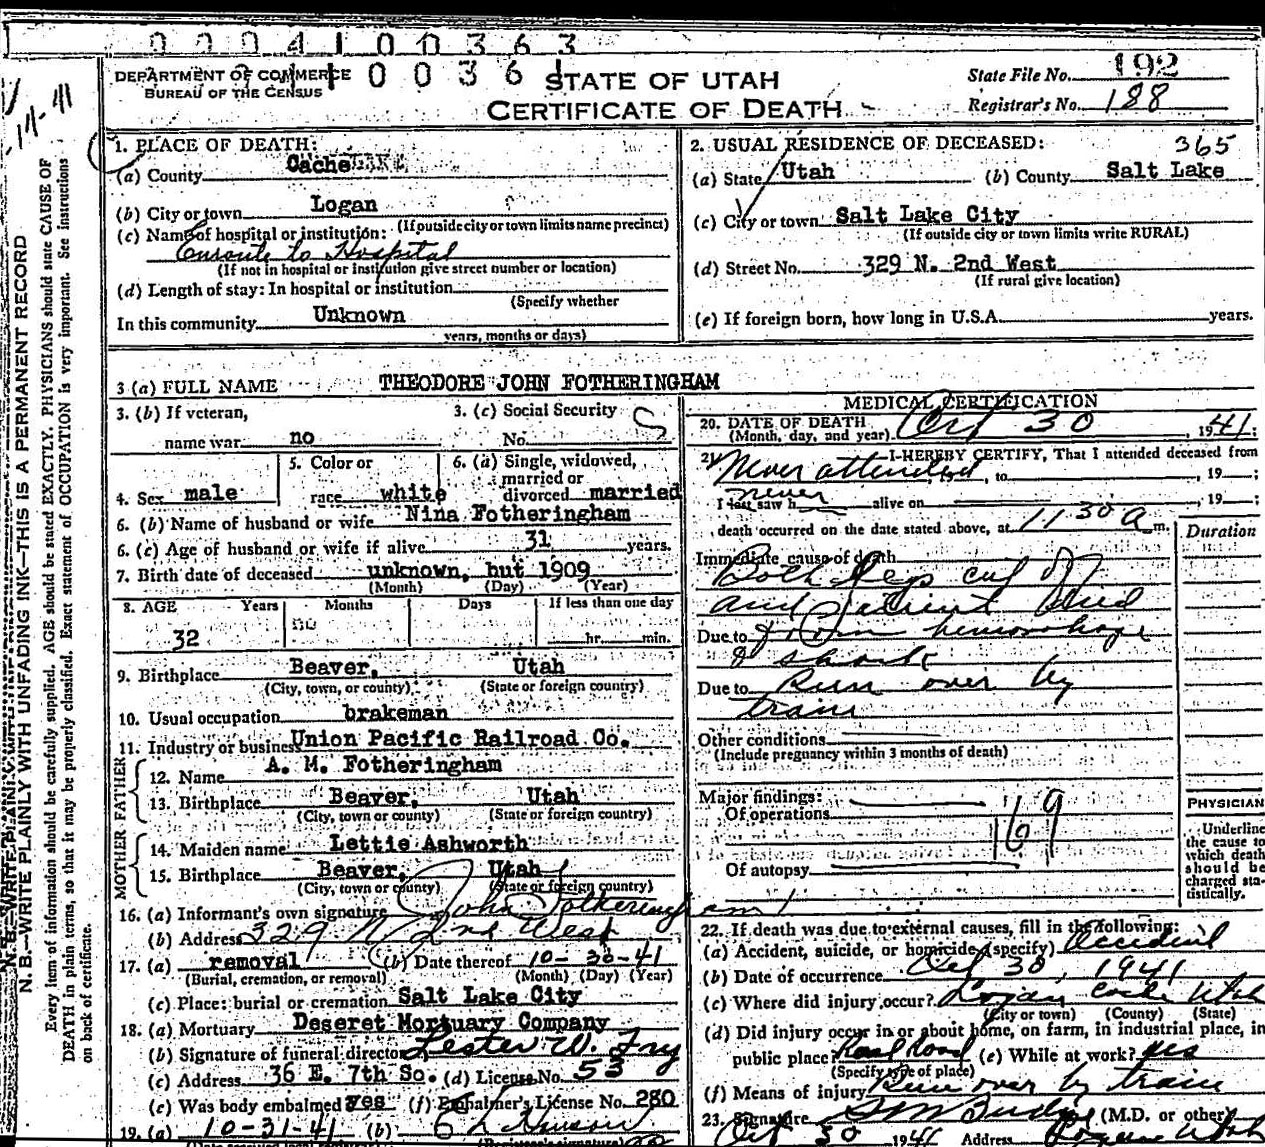 0 0 0 4 1 0 0 3 6 3
DEPARTMENT OF COMMERCE
BUREAU OF THE CENSUS
0 0 3 6 1
STATE OF UTAH
CERTIFICATE OF DEATH
State File No. 192
Registrar's No. 188
N. B.—WRITE PLAINLY WITH UNFADING INK—THIS IS A PERMANENT RECORD
Every item of information should be carefully supplied. AGE should be stated EXACTLY. PHYSICIANS should state CAUSE OF
DEATH in plain terms, so that it may be properly classified. Exact statement of OCCUPATION is very important. See instructions
on back of certificate.
1. PLACE OF DEATH:
(a) County Cache
(b) City or town Logan
(If outside city or town limits name precinct)
(c) Name of hospital or institution:
Enroute to Hospital
(If not in hospital or institution give street number or location)
(d) Length of stay: In hospital or institution
(Specify whether
In this community Unknown
years, months or days)
2. USUAL RESIDENCE OF DECEASED: 365
(a) State Utah (b) County Salt Lake
(c) City or town Salt Lake City
(If outside city or town limits write RURAL)
(d) Street No. 329 N. 2nd West
(If rural give location)
(e) If foreign born, how long in U.S.A. years.
3 (a) FULL NAME THEODORE JOHN FOTHERINGHAM
3. (b) If veteran,
name war no
3. (c) Social Security
No.
4. Sex male
5. Color or
race white
6. (a) Single, widowed,
married or
divorced married
6. (b) Name of husband or wife Nina Fotheringham
6. (c) Age of husband or wife if alive 31 years.
7. Birth date of deceased unknown, but 1909
(Month) (Day) (Year)
8. AGE Years Months Days If less than one day
32 hr. min.
9. Birthplace Beaver, Utah
(City, town, or county) (State or foreign country)
10. Usual occupation brakeman
11. Industry or business Union Pacific Railroad Co.
FATHER
12. Name A. M. Fotheringham
13. Birthplace Beaver, Utah
(City, town or county) (State or foreign country)
MOTHER
14. Maiden name Lettie Ashworth
15. Birthplace Beaver, Utah
(City, town or county) (State or foreign country)
16. (a) Informant's own signature John Fotheringham
(b) Address 329 N 2nd West
17. (a) removal (b) Date thereof 10-30-41
(Burial, cremation, or removal) (Month) (Day) (Year)
(c) Place: burial or cremation Salt Lake City
18. (a) Mortuary Deseret Mortuary Company
(b) Signature of funeral director Lester W. Fry
(c) Address 36 E. 7th So. (d) License No. 53
(e) Was body embalmed yes (f) Embalmer's License No. 280
19. (a) 10-31-41 (b)
MEDICAL CERTIFICATION
20. DATE OF DEATH
(Month, day, and year) Oct 30, 1941;
21. I HEREBY CERTIFY, That I attended deceased from
Never attended, 19 , to , 19 ;
I last saw h never alive on , 19 ;
death occurred on the date stated above, at 11 30 a m.
Duration
Immediate cause of death
Both legs cut off
and patient died
Due to from hemorrhage
& shock
Due to Run over by
train
Other conditions
(Include pregnancy within 3 months of death)
Major findings:
Of operations
169
Of autopsy
PHYSICIAN
Underline
the cause to
which death
should be
charged sta-
tistically.
22. If death was due to external causes, fill in the following:
(a) Accident, suicide, or homicide (specify) Accident
(b) Date of occurrence Oct 30, 1941
(c) Where did injury occur? Logan Cache Utah
(City or town) (County) (State)
(d) Did injury occur in or about home, on farm, in industrial place, in
public place? Rail Road (e) While at work? yes
(Specify type of place)
(f) Means of injury Run over by train
23. Signature (M.D. or other)
Oct 30 1941 Address Logan Utah